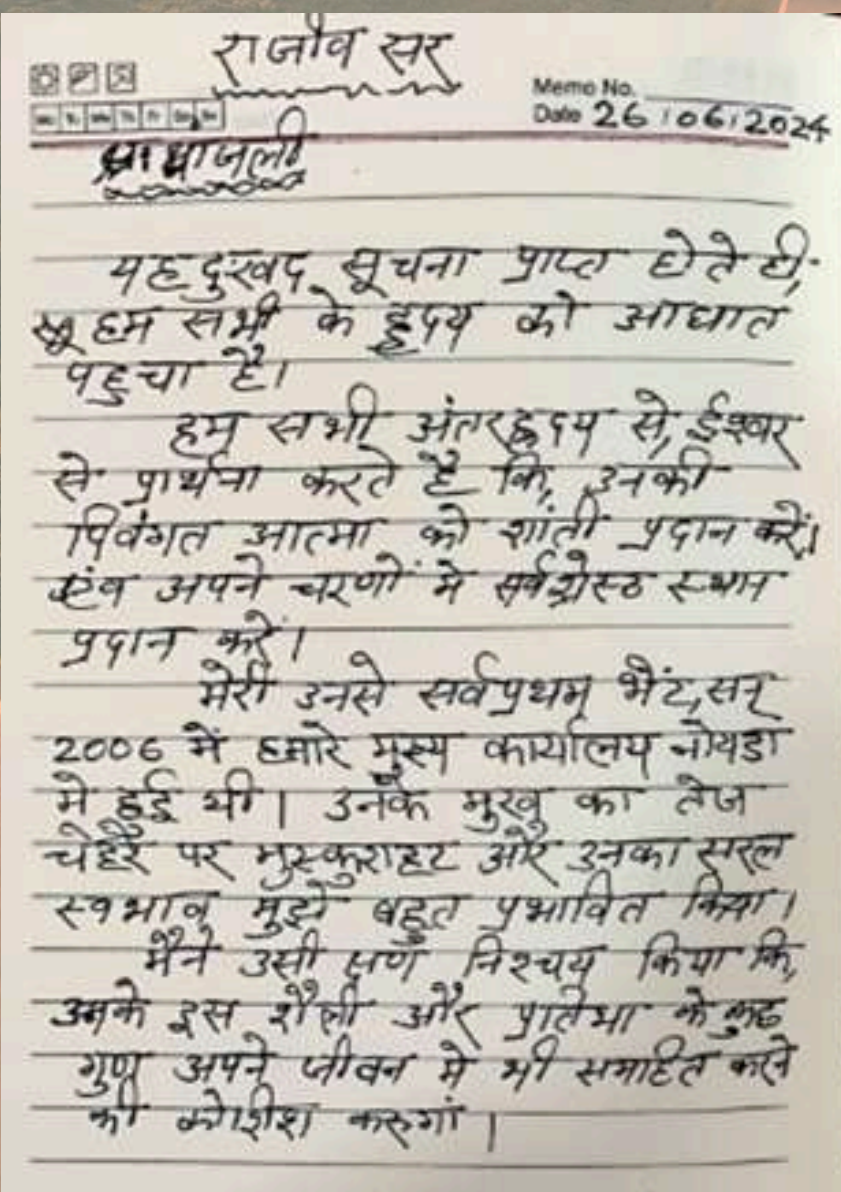 राजीव सर
Memo No.
Date 26/06/2024
यह दुखद सूचना प्राप्त होते ही,
हम सभी के हृदय को आघात
पहुचा है।
हम सभी अंतरहृदय से, ईश्वर
से प्रार्थना करते है कि, उनकी
दिवंगत आत्मा को शांती प्रदान करें।
एंव अपने चरणों मे सर्वश्रेस्ठ स्थान
प्रदान करें।
मेरी उनसे सर्वप्रथम भेंट, सन्
2006 में हमारे मुख्य कार्यालय नोयडा
मे हुई थी। उनके मुख का तेज
चेहरे पर मुस्कुराहट और उनका सरल
स्वभाव मुझे बहुत प्रभावित किया।
मैने उसी क्षण निश्चय किया कि,
उनके इस शैली और प्रतिभा के कुछ
गुण अपने जीवन मे भी समाहित करने
की कोशिश करुगां।